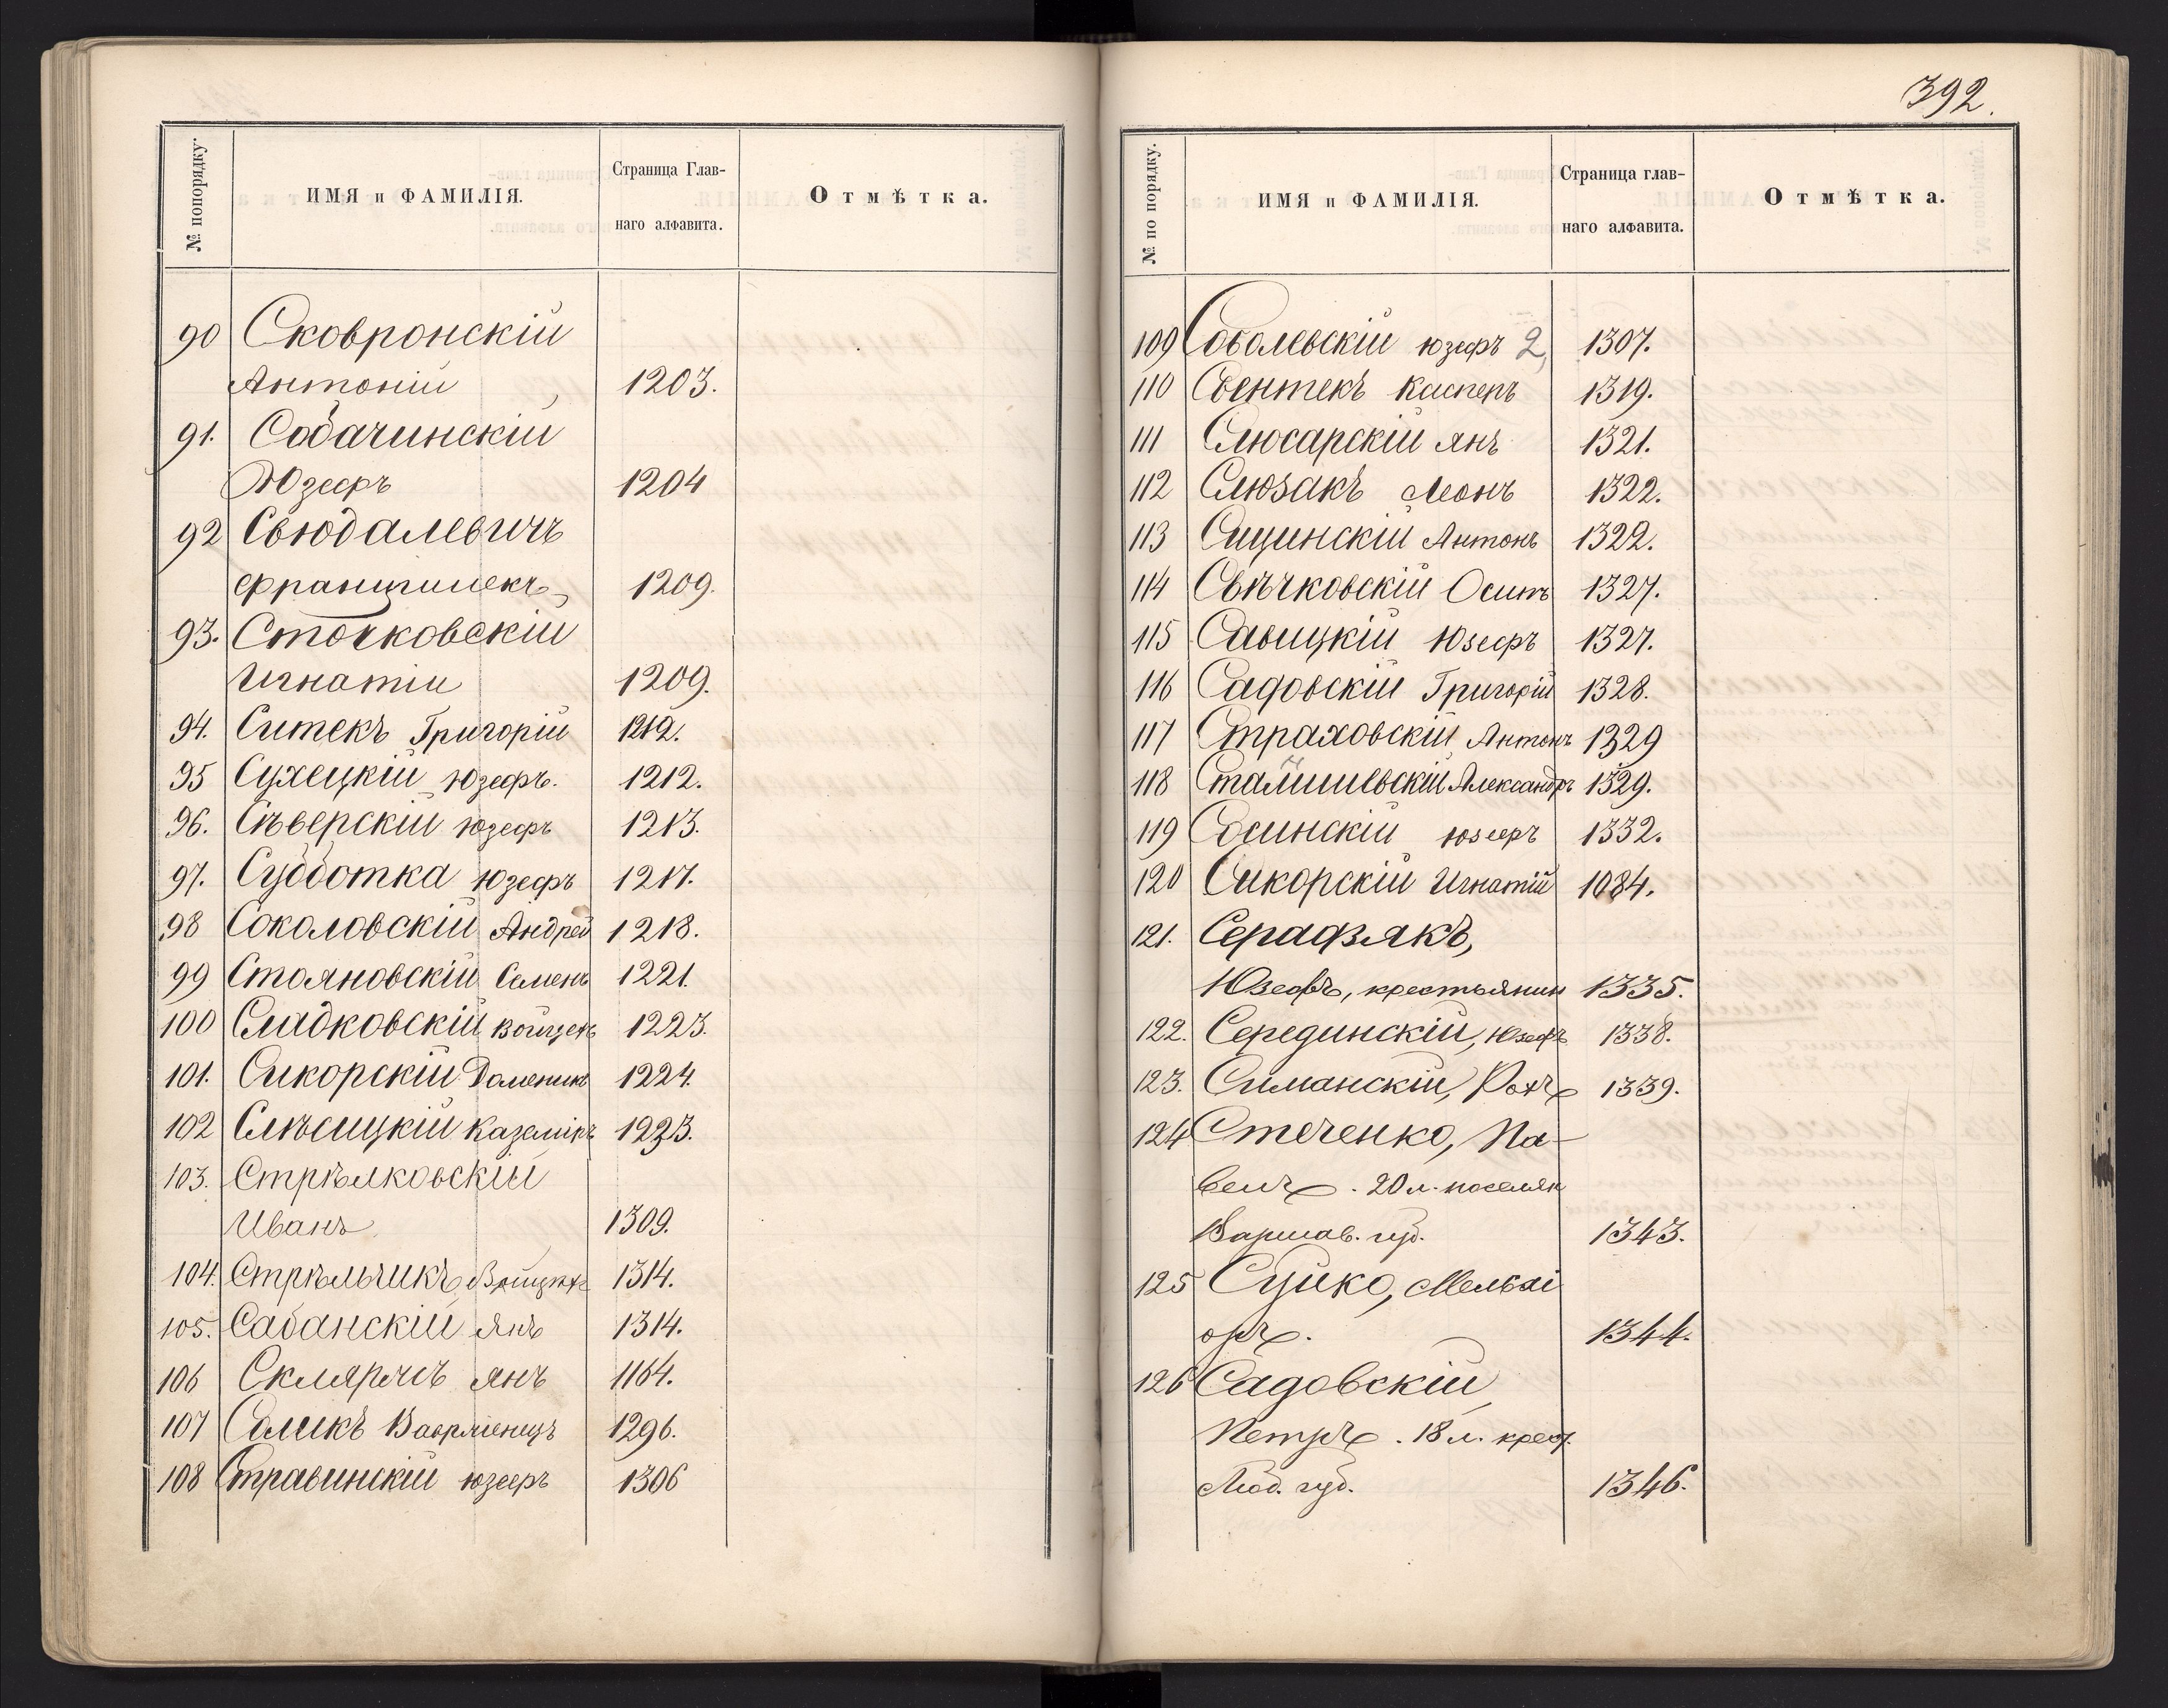 № попорядку.
ИМЯ и ФАМИЛІЯ.
Страница Глав-
наго алфавита.
Отмѣтка.
90 Сковронскій
Антоній 1203.
91. Собачинскій
Юзефъ 1204
92 Свюдалевичъ
Францишекъ 1209.
93. Сточковскій
Игнатій 1209.
94. Ситекъ Григорій 1212.
95 Сухецкій Юзефъ. 1212.
96. Сѣверскій Юзефъ 1213.
97. Субботка Юзефъ 1217.
98 Соколовскій Андрей 1218.
99 Стояновскій Семенъ 1221.
100 Сладковскій Войцехъ 1223.
101. Сикорскій Доменикъ 1224.
102 Слѣсицкій Каземіръ 1223.
103. Стрѣлковскій
Иванъ 1309.
104. Стрѣльчикъ, Войцехъ 1314.
105. Сабанскій Янъ 1314.
106 Склярчъ Янъ 1164.
107 Саликъ Вавржіенецъ 1296.
108 Стравинскій Юзефъ 1306
392.
№ по порядку.
ИМЯ и ФАМИЛІЯ.
Страница глав-
наго алфавита.
Отмѣтка.
109 Соболевскій Юзефъ 2, 1307.
110 Свентекъ Касперъ 1319.
111 Слюсарскій Янъ 1321.
112 Слюзакъ Леонъ 1322.
113 Сицинскій Антонъ 1322.
114 Свѣчковскій Осипъ 1327.
115 Савицкій Юзефъ 1327.
116 Садовскій Григорій 1328.
117 Страховскій Антонъ 1329
118 Сталишевскій Александръ 1329.
119 Сосинскій Юзефъ 1332.
120 Сикорскій Игнатій 1084.
121. Серафзякъ,
Юзефъ, крестьянин 1335.
122. Серединскій, Юзефъ 1338.
123. Симанскій, Рохъ 1339.
124 Стеченко, Па-
велъ. 20 л. поселян
Варшав. губ. 1343.
125 Суйко, Мельхі
оръ. 1344.
126 Садовскій
Петръ. 18 л. крест.
Люб. губ. 1346.